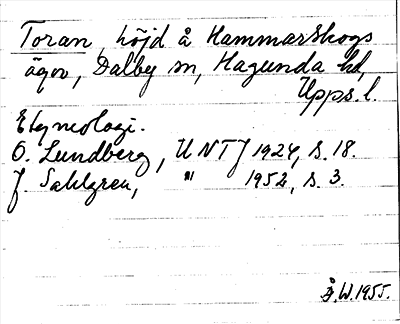 Toran, höjd å Hammarskogs
ägor, Dalby sn, Hagunda hd,
Upps. l.
Etymologi.
O. Lundberg, UNTJ 1924, s. 18.
J. Sahlgren, " 1952, s. 3.
Å.W. 1955.